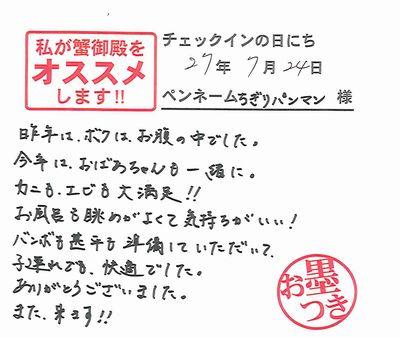 私が蟹御殿を
オススメ
します!!
チェックインの日にち
27年 7月 24日
ペンネーム ちぎりパンマン 様
昨年は、ボクは、お腹の中でした。
今年は、おばあちゃんも一緒に。
カニも、エビも大満足!!
お風呂も眺めがよくて気持ちがいい!
バンボも甚平も準備していただいて、
子連れでも、快適でした。
ありがとうございました。
また、来ます!!
お墨つき